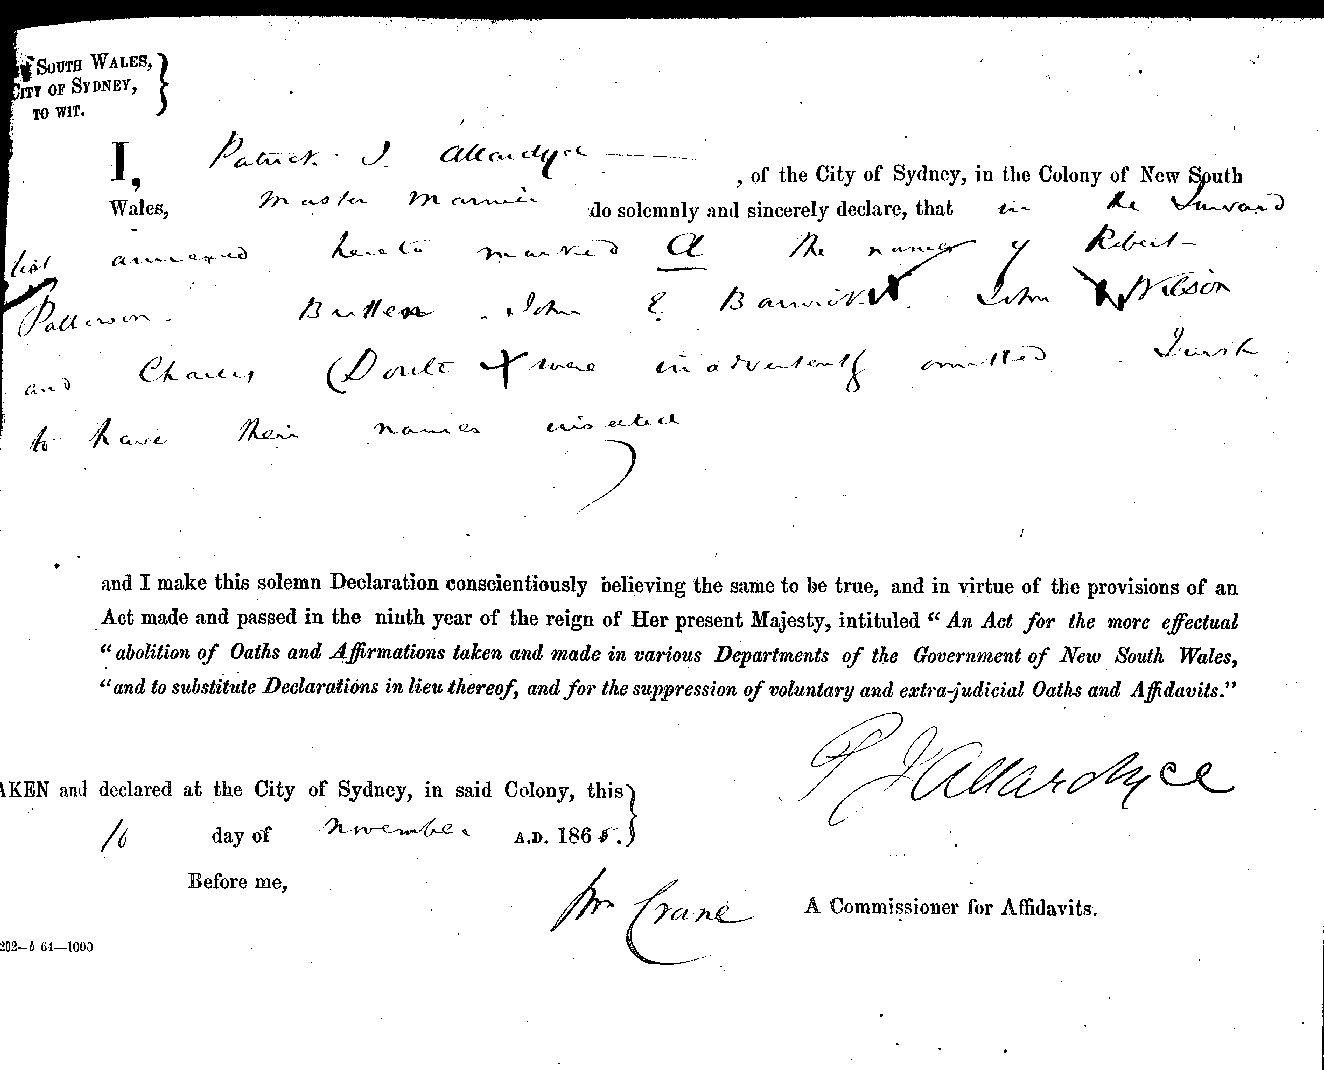 SOUTH WALES,
CITY OF SYDNEY,
TO WIT.
I, Patrick J. Allardyce , of the City of Sydney, in the Colony of New South
Wales, Master Mariner do solemnly and sincerely declare, that in the Inward
list annexed hereto marked A the names of Robert
Patterson. John E Barwick. John Wilson
and Charles were inadvertently omitted. I wish
to have their names inserted
and I make this solemn Declaration conscientiously believing the same to be true, and in virtue of the provisions of an
Act made and passed in the ninth year of the reign of Her present Majesty, intituled “ An Act for the more effectual
“ abolition of Oaths and Affirmations taken and made in various Departments of the Government of New South Wales,
“and to substitute Declarations in lieu thereof, and for the suppression of voluntary and extra-judicial Oaths and Affidavits.”
P J Allardyce
AKEN and declared at the City of Sydney, in said Colony, this
16 day of November A.D. 186 .
Before me,
Wm Crane A Commissioner for Affidavits.
202—b 64—1000